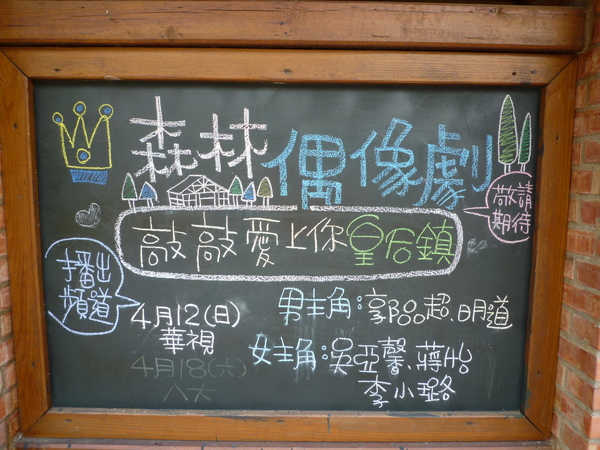 森林偶像劇
敬請
期待
敲敲愛上你皇后鎮
播出
頻道
4月12(日)
華視
4月18(六)
八大
男主角:郭品超、明道
女主角:吳亞馨、蔣怡
李小璐